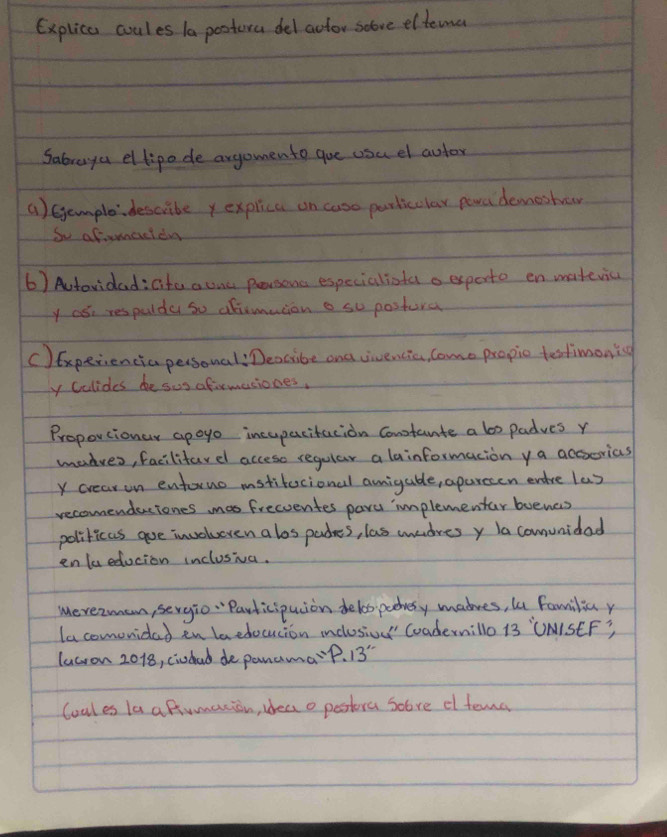 Explica cuales la postura del autor sobre el tema
Sabraya el tipo de argumento que usa el autor
a) Ejemplo: describe y explica un caso particular para demostrar
su afirmación
b) Autoridad: cita a una persona especialista o experto en materia
y así respalda su afirmación o su postura
c) Experiencia personal: Describe una vivencia, como propio testimonio
y calides de sus afirmaciones.
Proporcionar apoyo incapacitación constante a los padres y
madres, facilitar el acceso regular a la información y a accesorias
y crear un entorno institucional amigable, aparecen entre las
recomendaciones mas frecuentes para implementar buenas
politicas que involucren a los padres, las madres y la comunidad
en la edución inclusiva.
Merezman, sergio "Participación de los padres y madres, la Familia y
la comunidad en la educución inclusiva" Cuadernillo 13 "UNISEF",
2018, ciudad de panama "P.13"
Cual es la afirmación, idea o postura sobre el tema